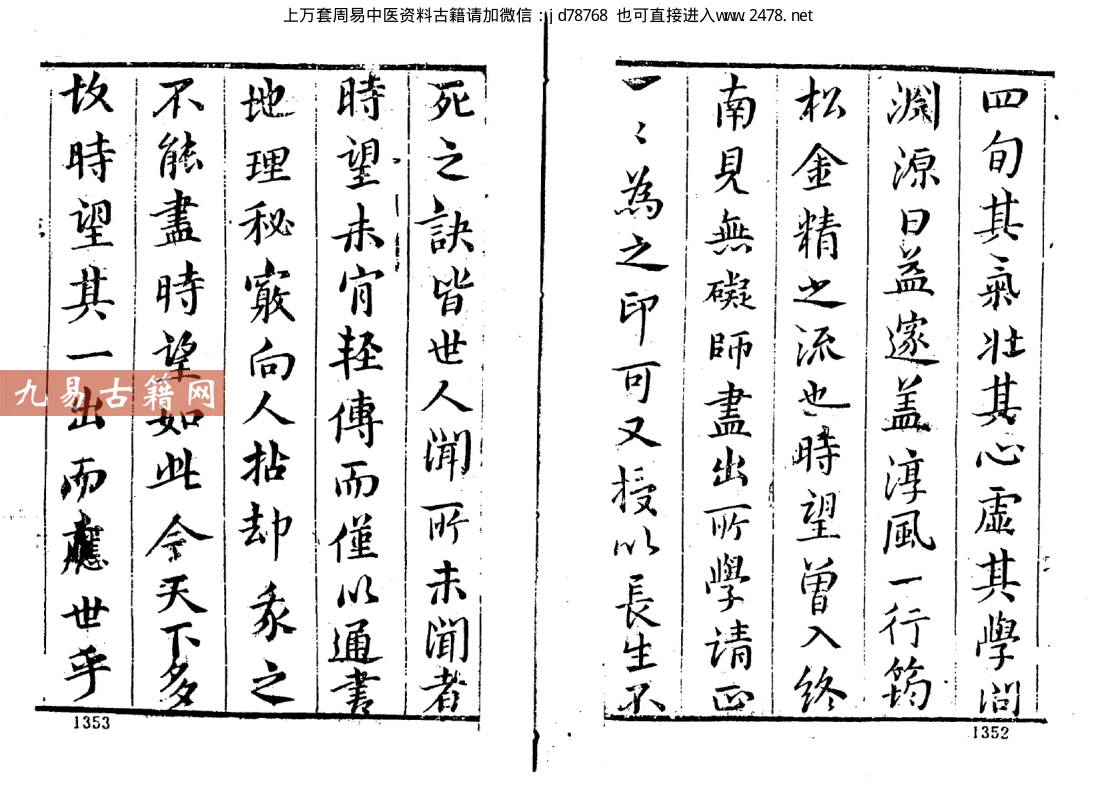 上万套周易中医资料古籍请加微信：jd78768 也可直接进入www.2478.net
四旬其氣壯其心虛其學問
淵源日益邃盖淳風一行筠
松金精之流也時望曽入終
南見無礙師盡出所學请正
一〻為之印可又授以長生不
1352
死之訣皆世人聞所未聞者
時望未肯轻傳而僅以通書
地理秘竅向人拈却象之
不能盡時望如此今天下多
故時望其一出而應世乎
1353
九易古籍网